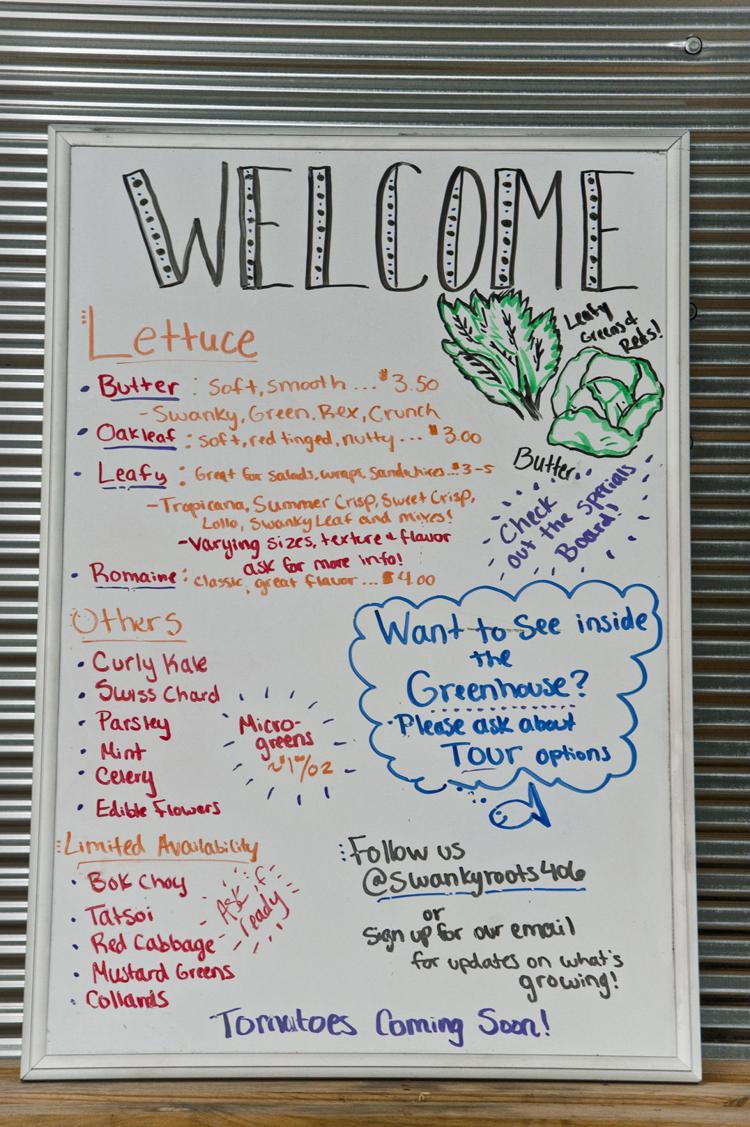 WELCOME
Lettuce
Leafy
Greens &
Reds!
• Butter : Soft, smooth ... $3.50
- Swanky, Green, Rex, Crunch
• Oakleaf : soft, red tinged, nutty ... $3.00
Butter
• Leafy : Great for salads, wraps, Sandwhices...$3-5
- Tropicana, Summer Crisp, Sweet Crisp,
Lollo, Swanky Leaf and mixes!
- Varying sizes, texture & flavor
ask for more info!
• Romaine : classic, great flavor ... $4.00
Check
out the specials
Board!
Others
• Curly Kale
• Swiss Chard
• Parsley
• Mint
• Celery
• Edible Flowers
Micro-
greens
~$1/oz
Want to See inside
the
Greenhouse?
• Please ask about
TOUR options
Limited Availability
• Bok Choy
• Tatsoi
• Red Cabbage
• Mustard Greens
• Collards
Ask if
ready
Follow us
@Swankyroots406
or
Sign up for our email
for updates on what's
growing!
Tomatoes Coming Soon!